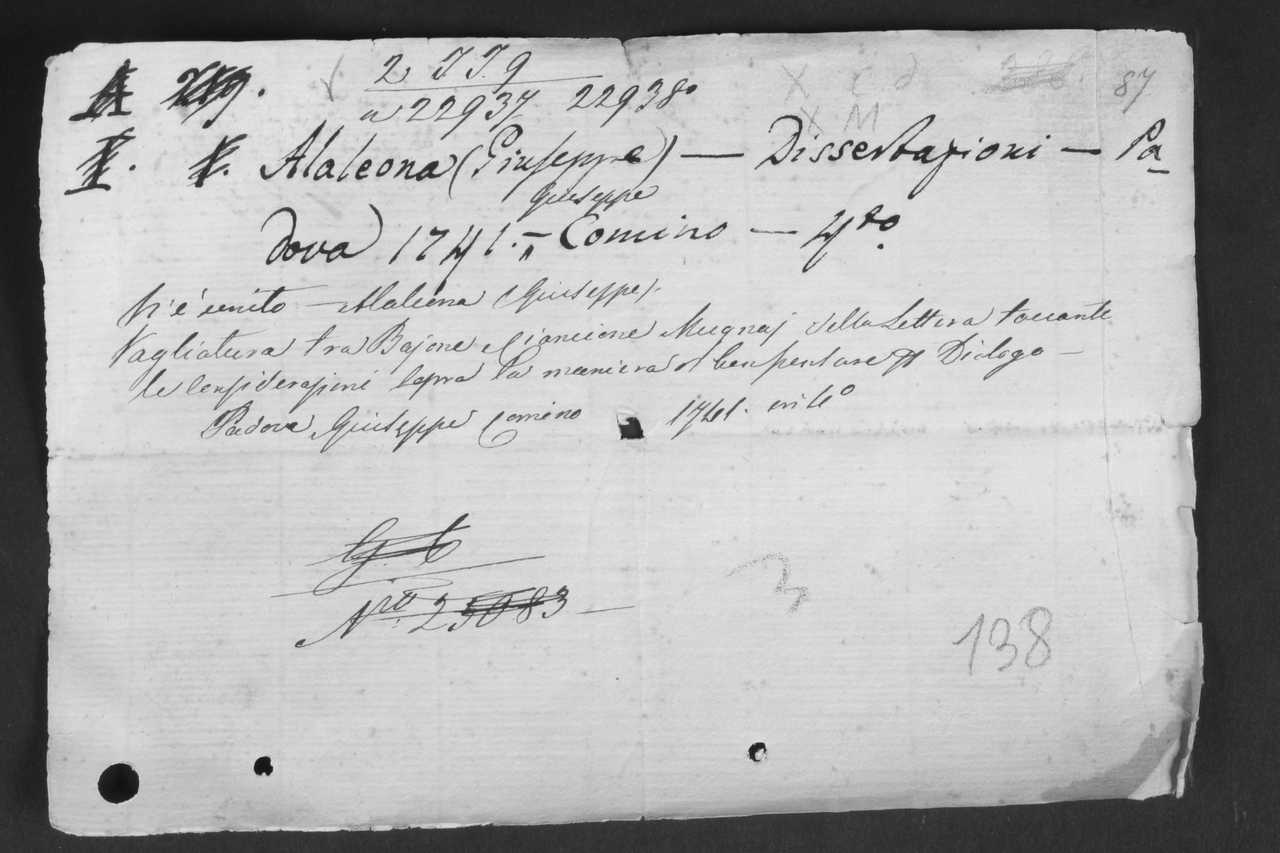 2. I.I.9
a 22937 22938.
X c d
87
X M
Alaleona (Giuseppe) — Dissertazioni — Pa-
Giuseppe
dova 1741. — Comino — 4to.
V'è unito — Alaleona (Giuseppe).
Vagliatura tra Bajone e Ciancione Mugnaj della Lettera toccante
le Considerazioni sopra la maniera di ben pensare Dialogo —
Padova Giuseppe Comino 1741. in 4o
Nro. 25083
3
138